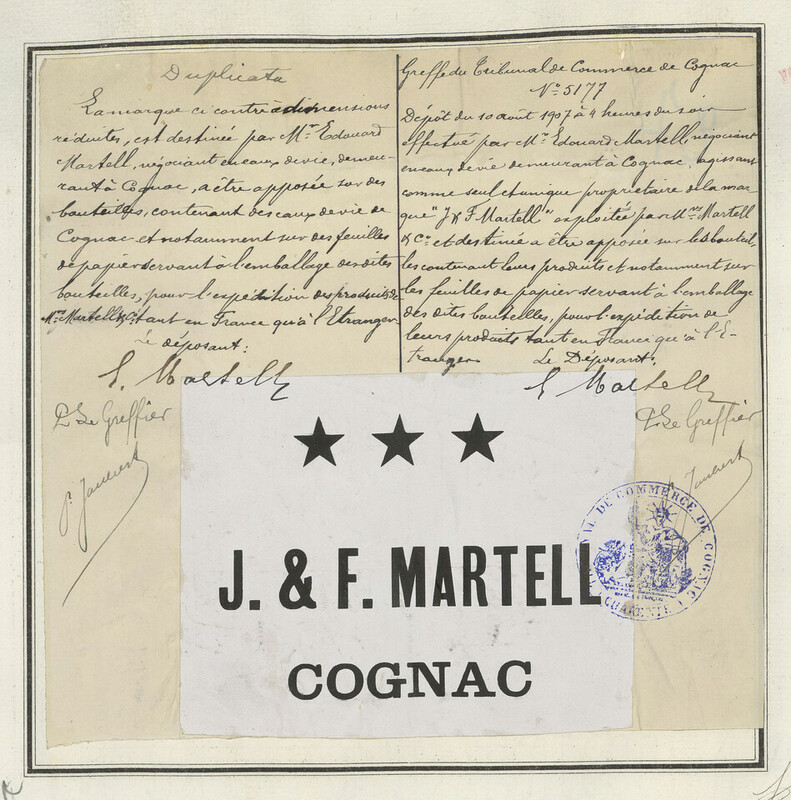 Duplicata
La marque ci contre à dimensions
réduites, est destinée par Mr. Edouard
Martell, négociant en eaux de vie, demeu-
rant à Cognac, a être apposée sur des
bouteilles, contenant des eaux de vie de
Cognac et notamment sur des feuilles
de papier servant à l'emballage des dites
bouteilles, pour l'expédition des produits de
Mrs. Martell & Co. tant en France qu'à l'Etranger.
Le déposant:
E. Martell
Pr. Le Greffier
P. Jaubert
Greffe du Tribunal de Commerce de Cognac
No. 5177
Dépôt du 10 août 1907 à 4 heures du soir
effectué par Mr. Edouard Martell, négociant
en eaux de vie demeurant à Cognac, agissant
comme seul et unique propriétaire de la mar-
que "J & F Martell" exploitée par Mrs. Martell
& Co. et destinée a être apposée sur les bouteil-
les contenant leurs produits et notamment sur
les feuilles de papier servant à l'emballage
des dites bouteilles, pour l'expédition de
leurs produits tant en France qu'à l'E-
tranger
Le Déposant:
E Martell
Pr. Le Greffier
P. Jaubert
★ ★ ★
J. & F. MARTELL
COGNAC
DE COMMERCE DE COGNAC
CHARENTE